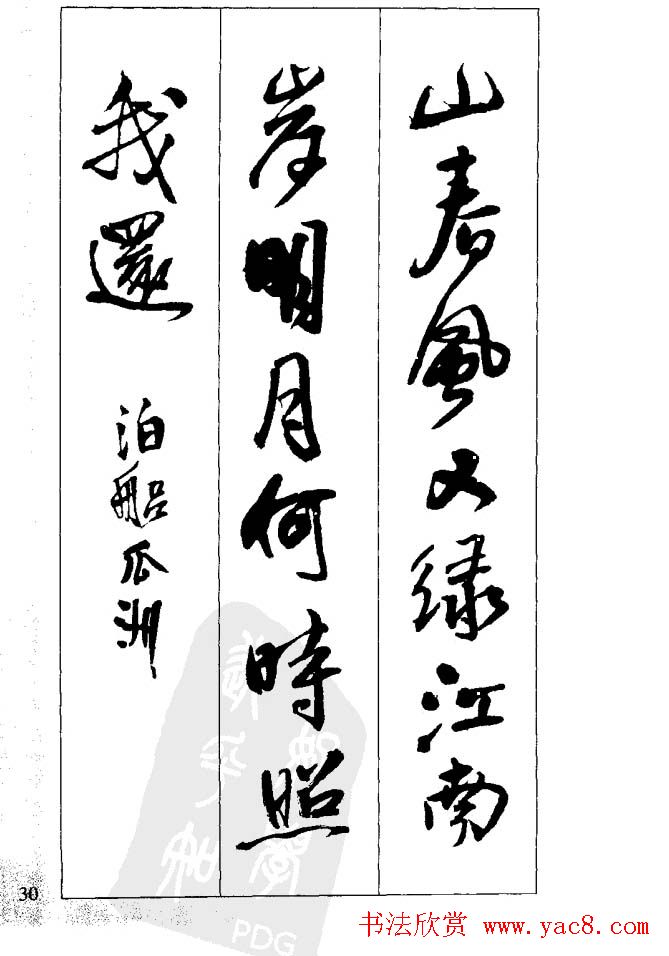 山春風又緑江南
岸明月何時照
我還
泊船瓜洲
30
PDG
书法欣赏 www.yac8.com